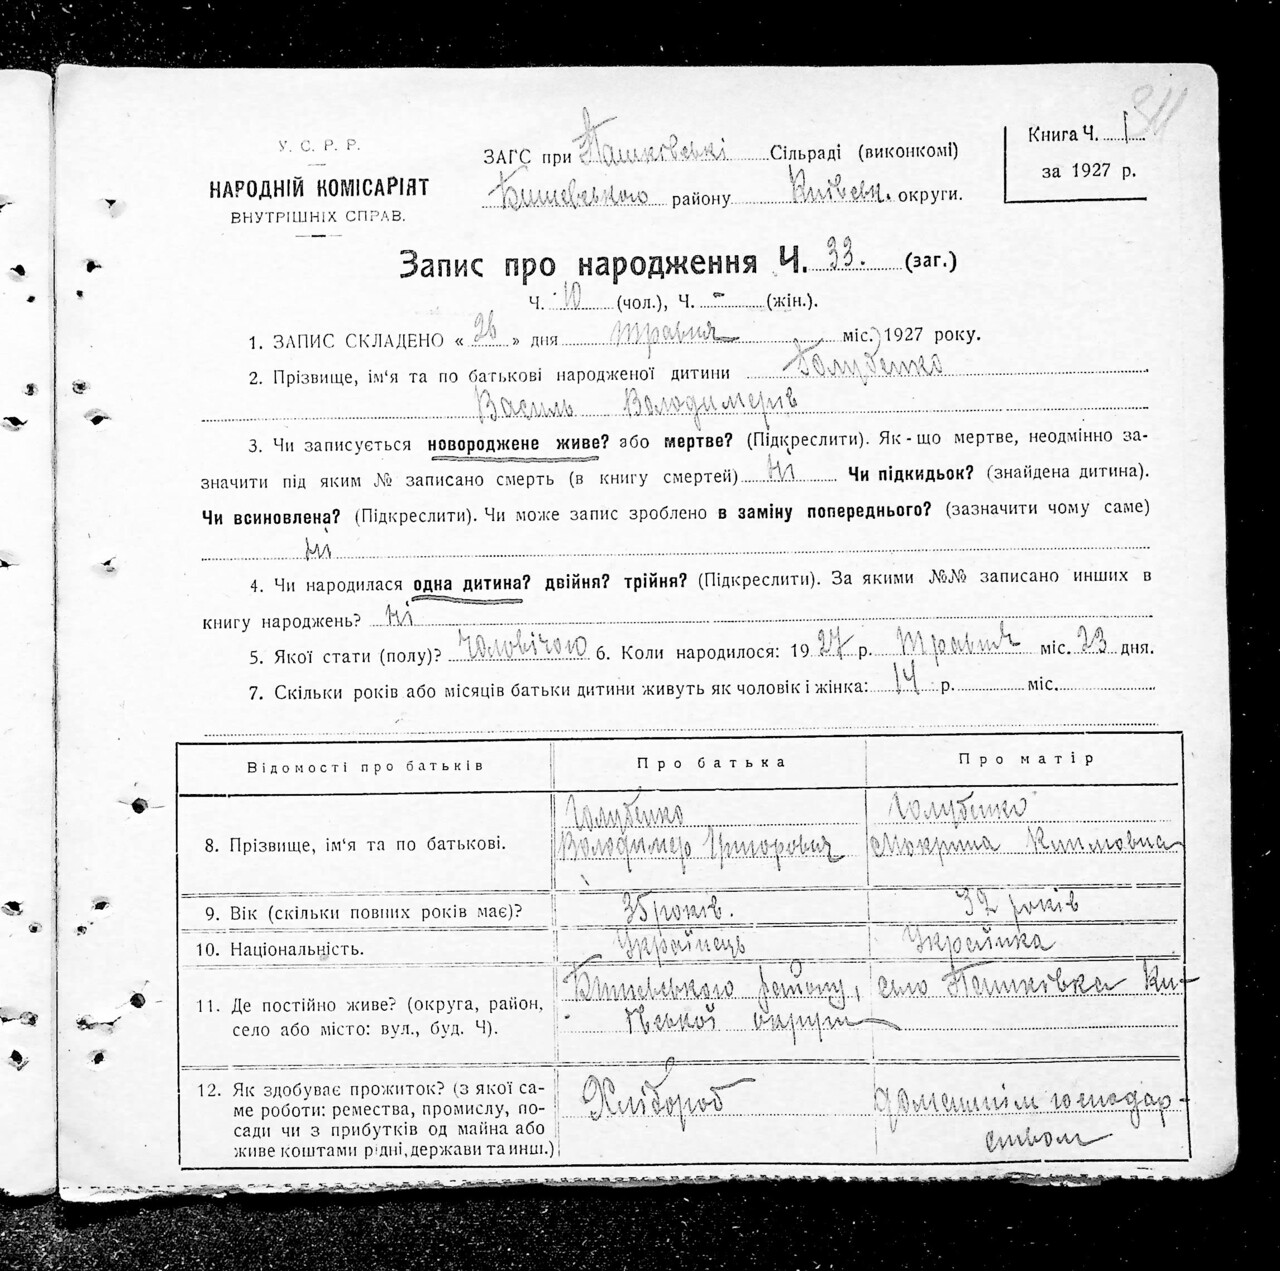 311
У. С. Р. Р.
НАРОДНІЙ КОМІСАРІЯТ
ВНУТРІШНІХ СПРАВ.
ЗАГС при Пашківські Сільраді (виконкомі)
Бишевського району Київськ. округи.
Книга Ч. I
за 1927 р.
Запис про народження Ч. 33. (заг.)
Ч. 10 (чол.), Ч. - (жін.).
1. ЗАПИС СКЛАДЕНО « 26 » дня травня міс. 1927 року.
2. Прізвище, ім‘я та по батькові народженої дитини Голубенко
Василь Володимерів
3. Чи записується новороджене живе? або мертве? (Підкреслити). Як-що мертве, неодмінно за-
значити під яким № записано смерть (в книгу смертей) ні Чи підкидьок? (знайдена дитина).
Чи всиновлена? (Підкреслити). Чи може запис зроблено в заміну попереднього? (зазначити чому саме)
ні
4. Чи народилася одна дитина? двійня? трійня? (Підкреслити). За якими №№ записано инших в
книгу народжень? ні
5. Якої стати (полу)? Чоловічою 6. Коли народилося: 1927 р. травня міс. 23 дня.
7. Скільки років або місяців батьки дитини живуть як чоловік і жінка: 14 р. міс.
Відомості про батьків Про батька Про матір
8. Прізвище, ім‘я та по батькові. Голубенко Володимер Григорович Голубенко Мокрина Климовна
9. Вік (скільки повних років має)? 35 років. 32 років
10. Національність. Українець Українка
11. Де постійно живе? (округа, район, Бишевського району, село Пашківка Ки-
село або місто: вул., буд. Ч). ївської округи
12. Як здобуває прожиток? (з якої са-
ме роботи: ремества, промислу, по- Хлібороб домашнім господар-
сади чи з прибутків од майна або ством
живе коштами рідні, держави та инш.)